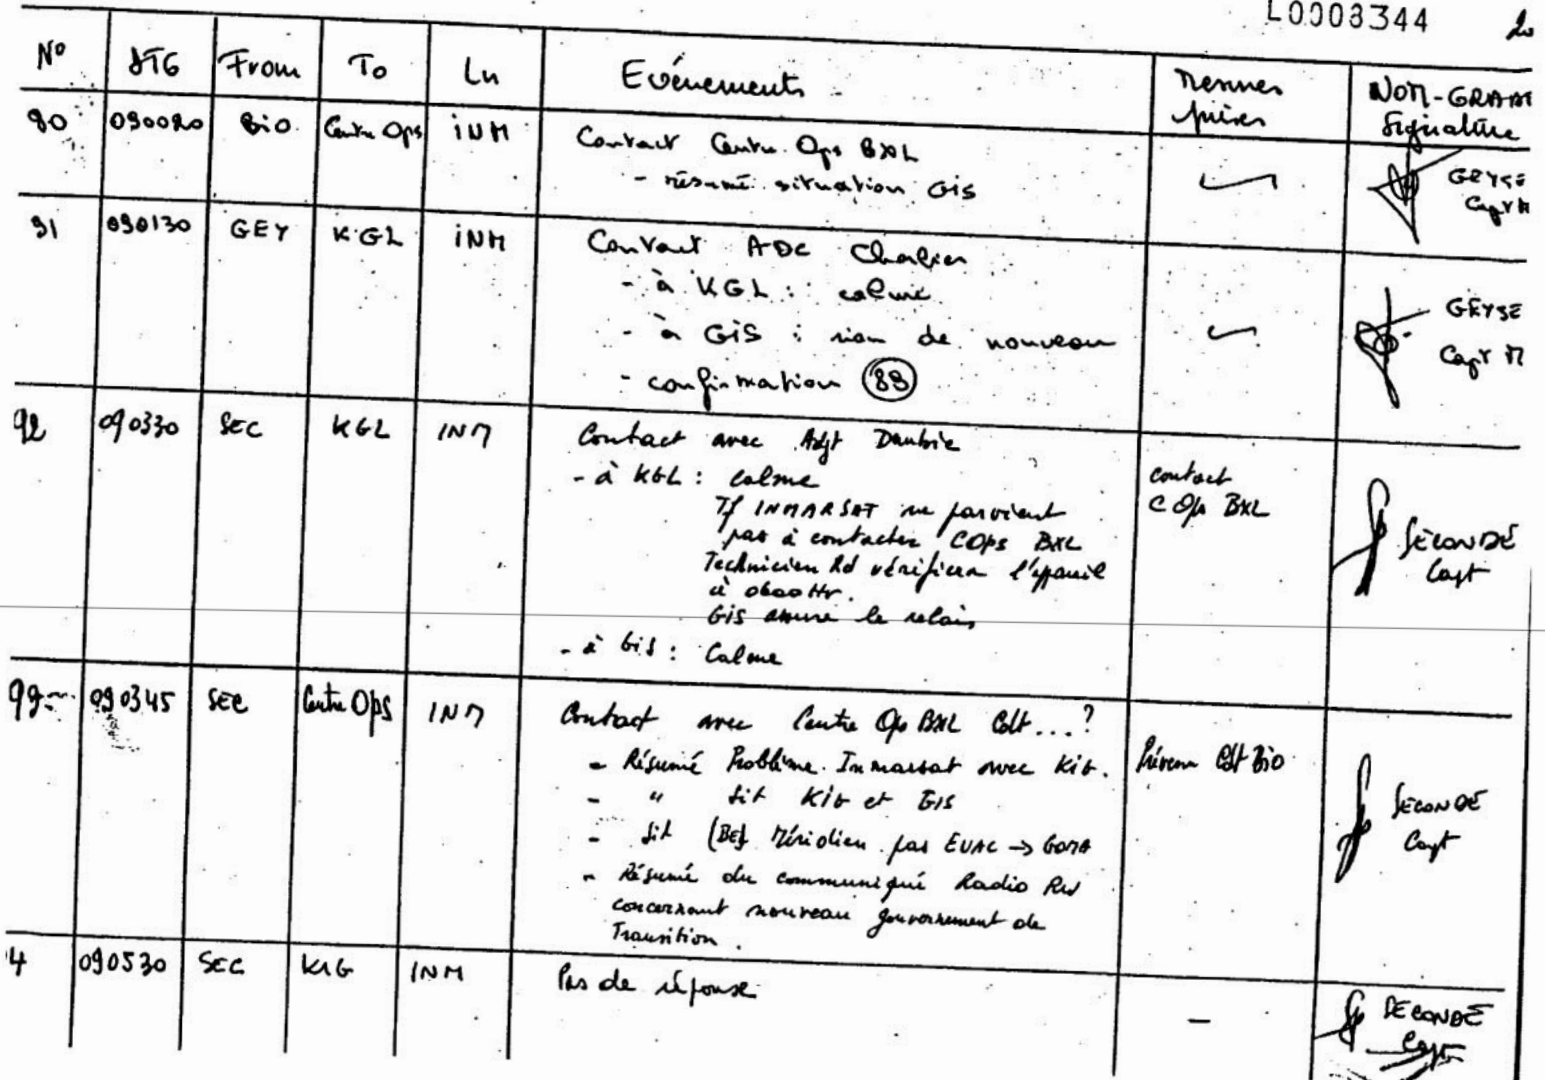 L0003344
N° DTG From To Ln Evénements Mesures prises NOM-GRADE Signature
90 090020 BIO Centre Ops INM Contact Centre Ops BXL
- résumé situation GIS
GEYSE
Capt M
91 090130 GEY KGL INM Contact ADC Chalier
- à KGL : calme
- à GIS : rien de nouveau
- confirmation 89
GEYSE
Capt M
92 090330 SEC KGL INM Contact avec Adjt
- à KGL : calme
Tf INMARSAT ne parvient
pas à contacter COps BXL
Technicien Rd vérifiera l'appareil
à 0600Hr.
GIS assure le relais
- à GIS : Calme
contact
C Ops BXL
SECONDE
Capt
090345 SEC Centre Ops INM Contact avec Centre Op BXL Cdt...?
- Résumé Problème Inmarsat avec KIG.
- " Sit KIG et GIS
- Sit (BE) Méridien pas EVAC → GOMA
- Résumé du communiqué Radio RW
concernant nouveau gouvernement de
Transition.
Prévenu Cdt Bio
SECONDE
Capt
4 090530 SEC KIG INM Pas de réponse
—
SECONDE
Capt